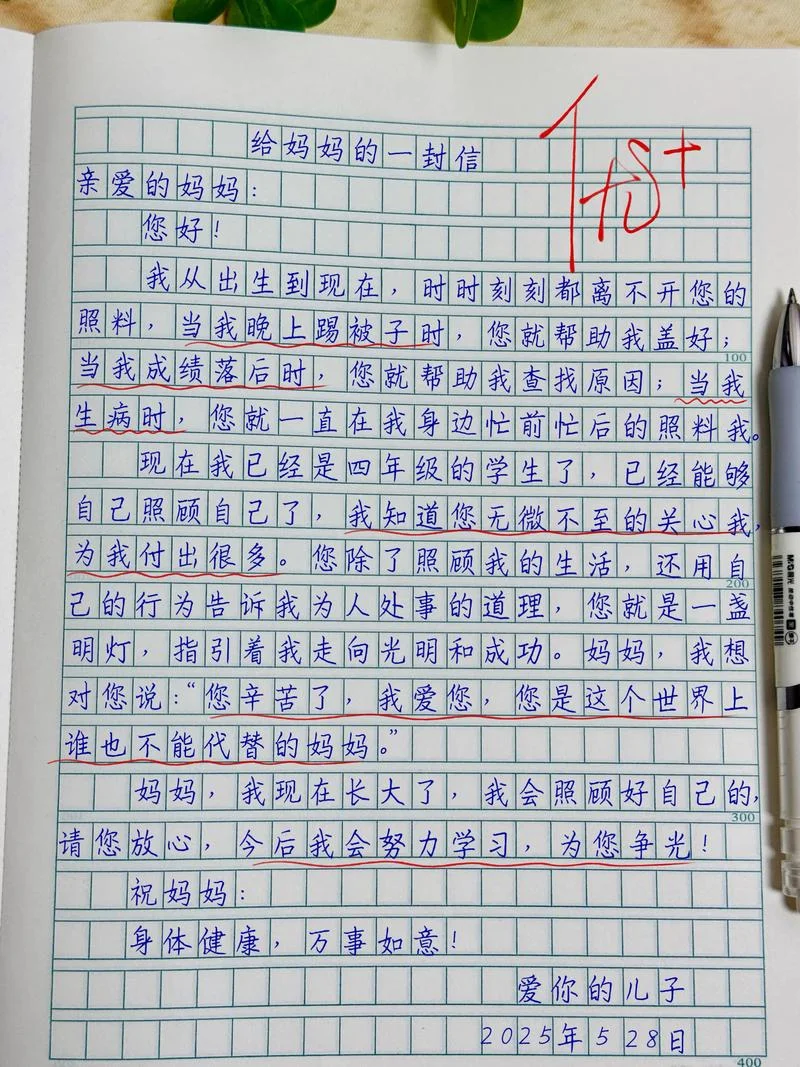 给妈妈的一封信
优+
亲爱的妈妈：
您好！
我从出生到现在，时时刻刻都离不开您的
照料，当我晚上踢被子时，您就帮助我盖好；
100
当我成绩落后时，您就帮助我查找原因；当我
生病时，您就一直在我身边忙前忙后的照料我。
现在我已经是四年级的学生了，已经能够
自己照顾自己了，我知道您无微不至的关心我，
为我付出很多。您除了照顾我的生活，还用自
200
己的行为告诉我为人处事的道理，您就是一盏
明灯，指引着我走向光明和成功。妈妈，我想
对您说：“您辛苦了，我爱您，您是这个世界上
谁也不能代替的妈妈。”
妈妈，我现在长大了，我会照顾好自己的，
300
请您放心，今后我会努力学习，为您争光！
祝妈妈：
身体健康，万事如意！
爱你的儿子
2025年528日
400
M&G晨光